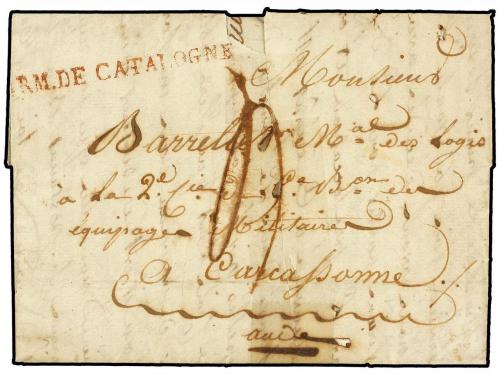 RM. DE CATALOGNE
Monsieur
Barrelle Mal des Logis
à La 2e Cie Bon des
équipages Militaires
a Carcassonne
aude